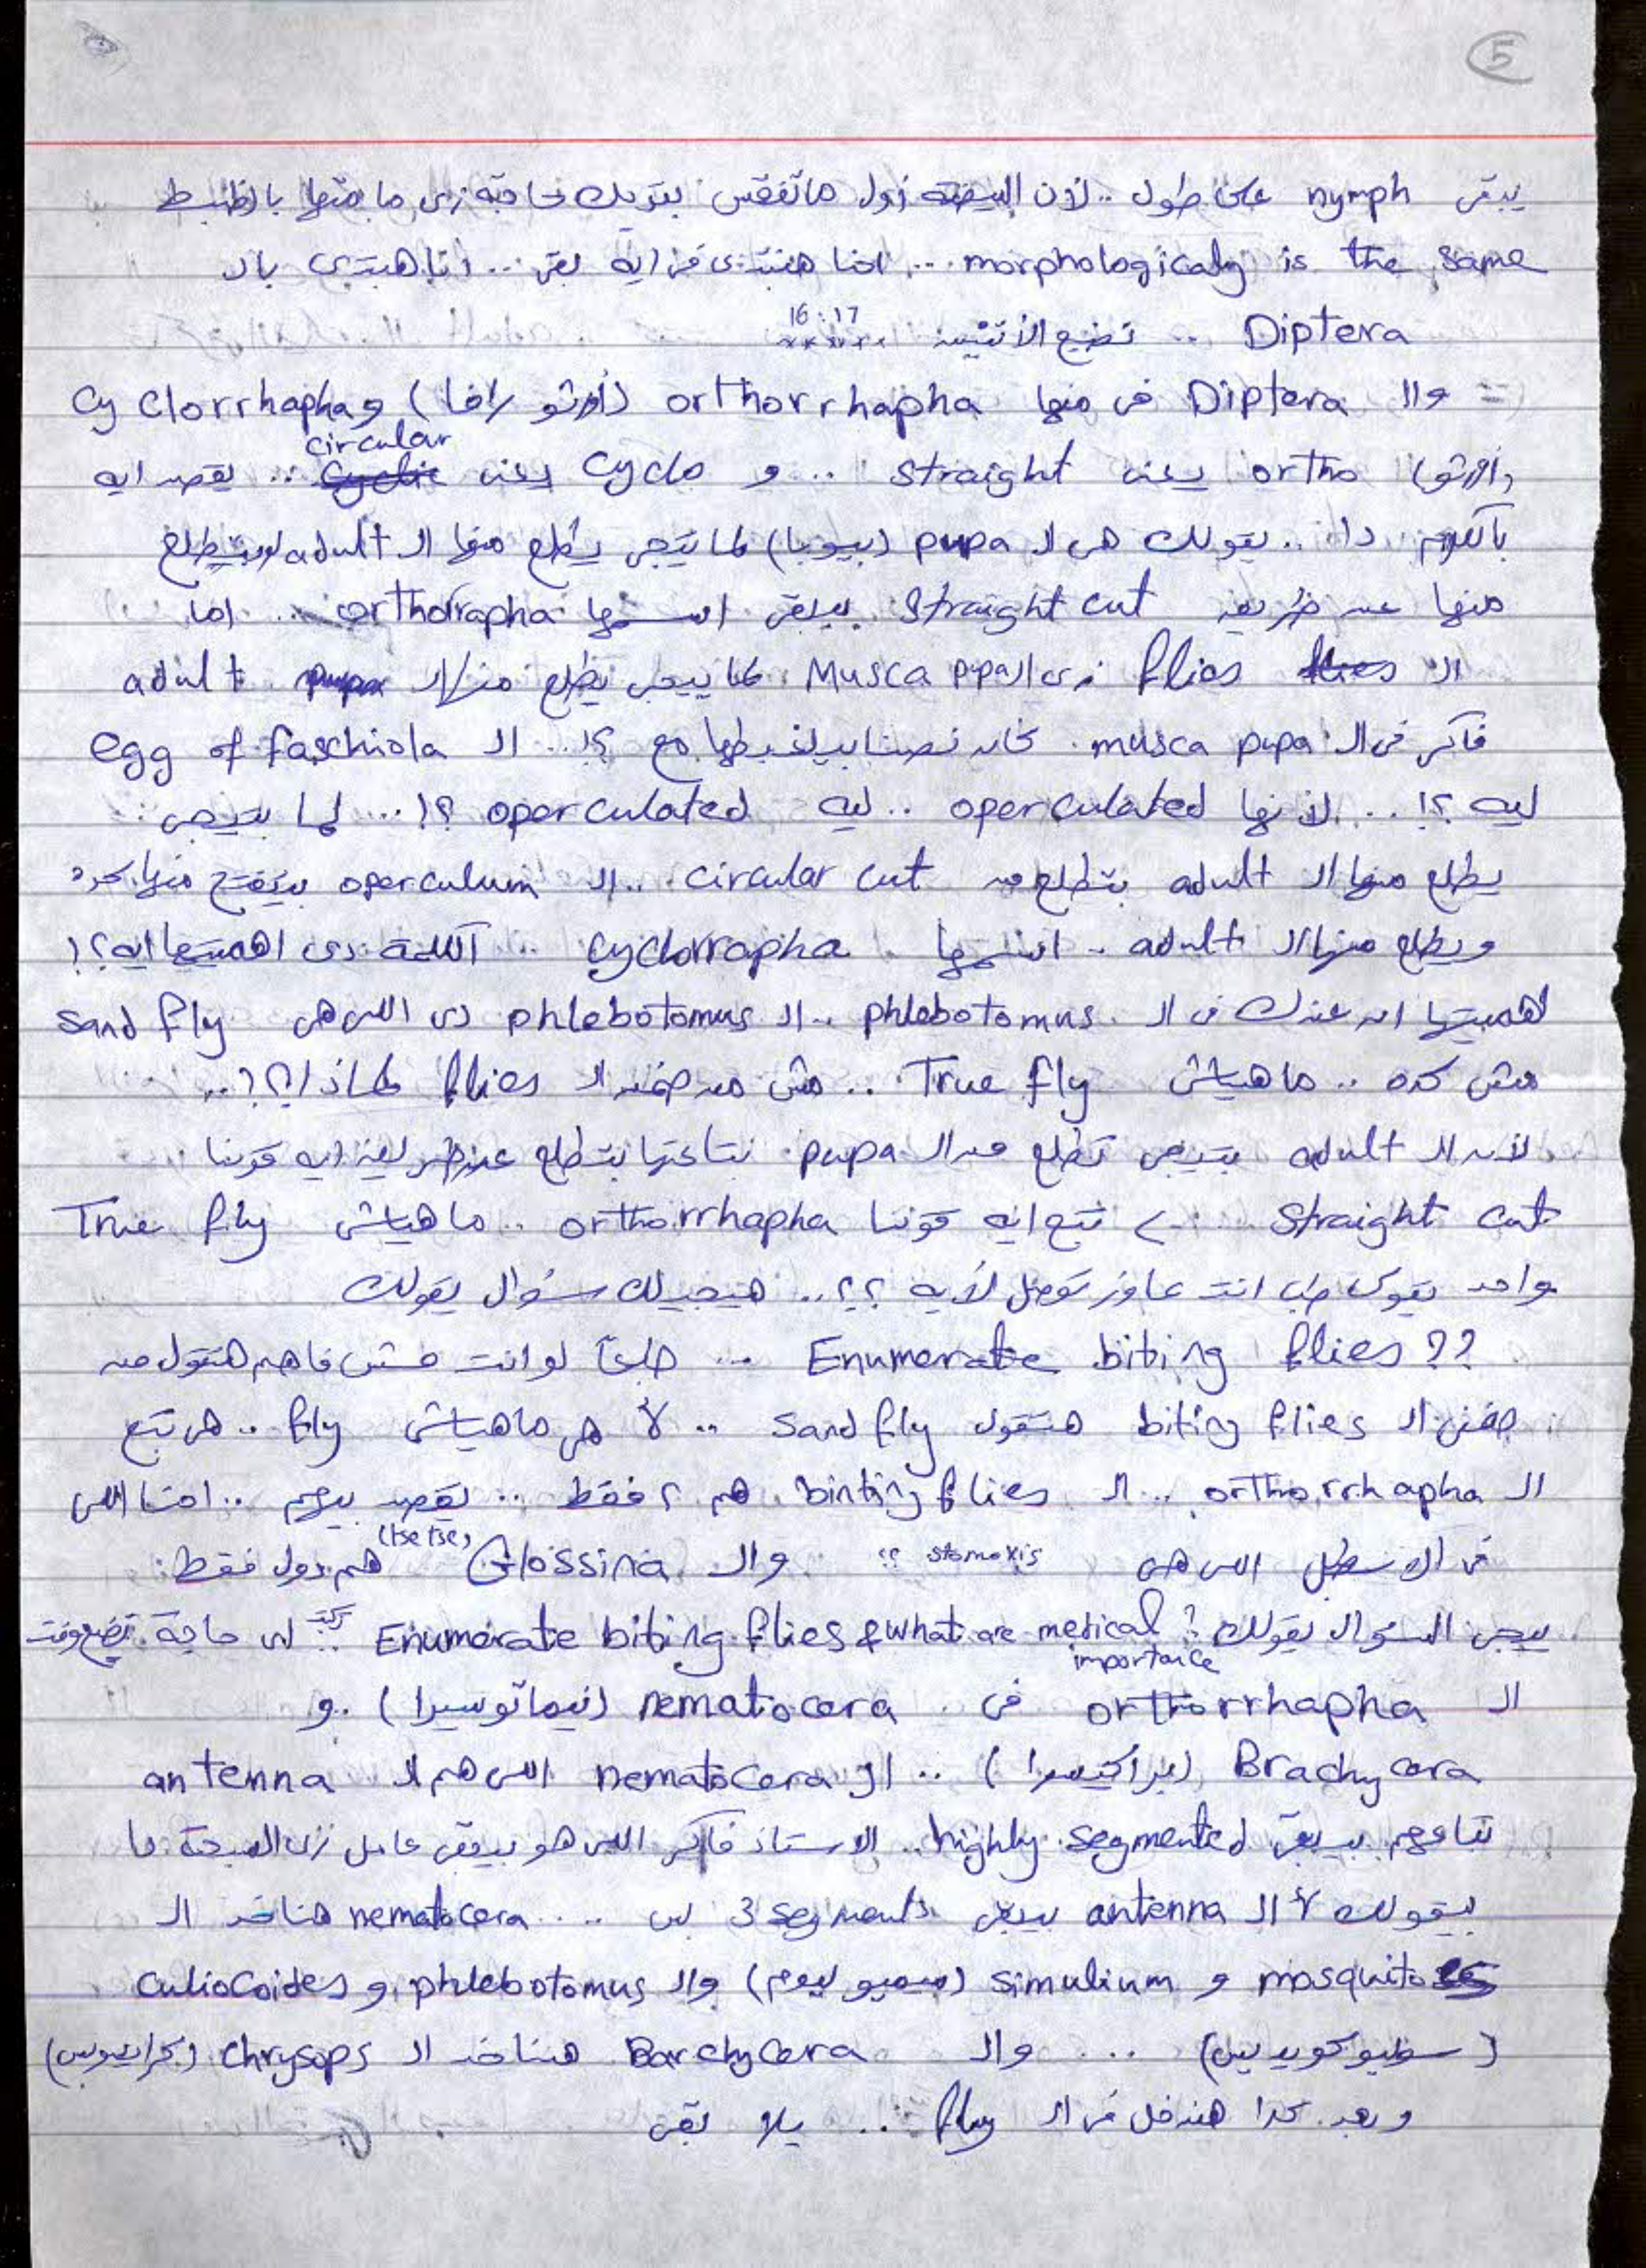 5
يبقى nymph على طول .. لأن البيضة أول ماتفقس بتديك حاجة زى مامتها بالظبط
morphologicaly is the same ... احنا هنبتدى فى ايه بقى ... أنا هبتدى بالـ
Diptera ..
16:17
= والـ Diptera فى منها orthorrhapha (أورثو رافا) و Cyclorrhapha
(أورثو) ortho يعنى straight .. و Cyclo يعنى circular .. يقصد ايه
بالكلام دا .. يقولك هى الـ pupa (بيوبا) لما تيجى يطلع منها الـ adult لو بتطلع
منها عن طريق straight cut بيبقى اسمها orthorrapha .. اما
الـ flies زى الـ Musca pupa لما ييجى يطلع منها الـ adult
فاكر فى الـ musca pupa كان نصنا بيلغبطها مع ؟! .. الـ egg of faschiola
ليه ؟! .. لأنها operculated .. ليه operculated ؟! ... لما بتيجى
يطلع منها الـ adult بتطلع من circular cut .. الـ operculum بيتفتح منها كده
ويطلع منها الـ adult .. اسمها cyclorrapha .. الكلمة دى اهميتها ايه ؟!
اهميتها ان عندك فى الـ phlebotomus .. الـ phlebotomus دى اللى هى sand fly
مش كده .. ماهياش True fly .. مش من ضمن الـ flies لماذا ؟! ..
لأن الـ adult بتيجى تطلع من الـ pupa بتاعتها بتطلع عن طريق ايه قولنا
straight cut .. > تتبع ايه قولنا orthorrhapha .. ماهياش True fly
واحد يقولك طب انت عاوز توصل لأيه ؟؟ .. هيجيلك سؤال يقولك
Enumerate biting flies ?? ... طبعاً لو انت مش فاهم هتقول من
ضمن الـ biting flies هتقول sand fly .. لأ هى ماهياش fly .. هى تبع
الـ orthorrhapha .. الـ binting flies هم 2 فقط .. يقصد بيهم ..
فى الاسطبل اللى هى stomoxis ؟؟ والـ Glossina (tse tse) هم دول فقط
ييجى السؤال يقولك ? Enumerate biting flies & what are medical importance .. حاجة تضيع وقت
الـ orthorrhapha فى nematocera (نيماتوسيرا) و
Brachycera (براكيسيرا) .. الـ nematocera اللى هم الـ antenna
بتاعهم بيبقى highly segmented .. الاستاذ فاكر اللى هو بيبقى عامل زى السبحة ما
بيقولك لأ الـ antenna بيبقى 3 segments بس .... nematocera هناخد الـ
mosquitoes و simulium (سيميوليوم) والـ phlebotomus و culiocoides
(سوليوكويديس) ... والـ Barchycera هناخد الـ chrysops (كرايسوبس)
وبعد كدا هندخل فى الـ fly .. يلا بقى